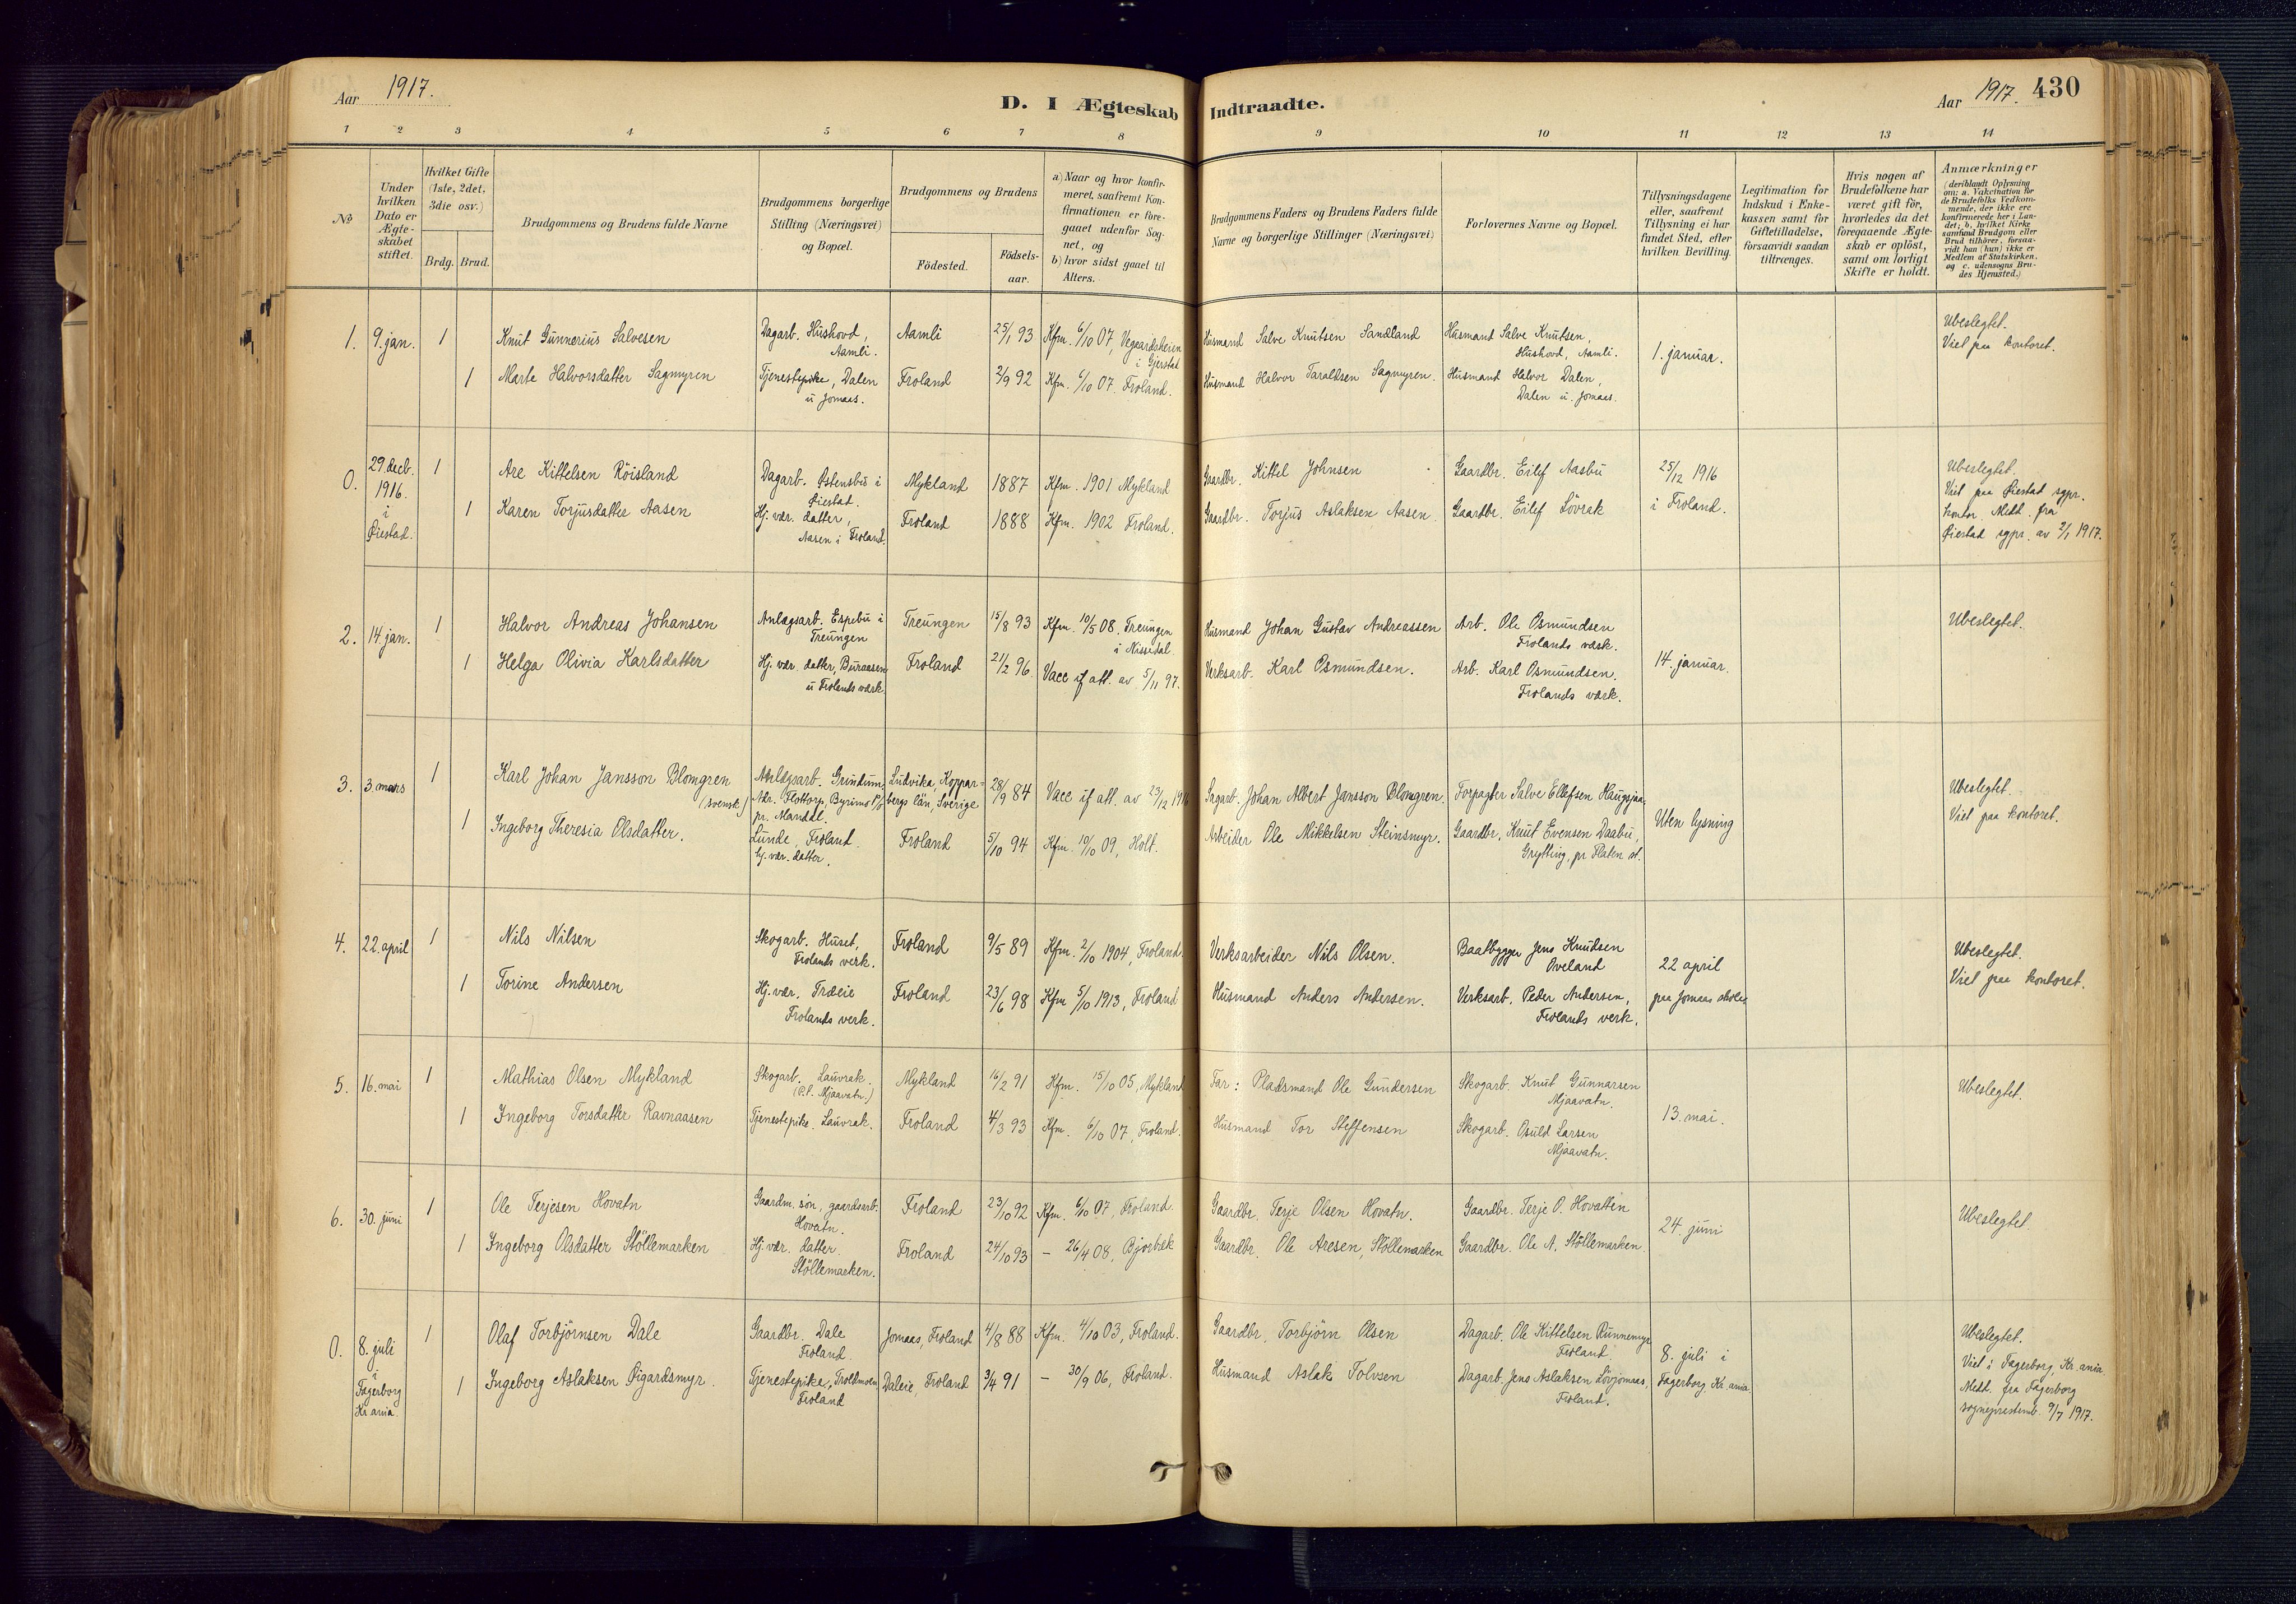 Aar 1917.
D. I Ægteskab Indtraadte.
Aar 1917. 430
1 2 3 4 5 6 7 8 9 10 11 12 13 14
No
Under hvilken Dato er Ægteskabet stiftet.
Hvilket Gifte (1ste, 2det, 3die osv.)
Brdg. Brud.
Brudgommens og Brudens fulde Navne
Brudgommens borgerlige Stilling (Næringsvei) og Bopæl.
Brudgommens og Brudens
Födested.
Födselsaar.
a) Naar og hvor konfirmeret, saafremt Konfirmationen er foregaaet udenfor Sognet, og
b) hvor sidst gaaet til Alters.
Brudgommens Faders og Brudens Faders fulde Navne og borgerlige Stillinger (Næringsvei)
Forlovernes Navne og Bopæl.
Tillysningsdagene eller, saafremt Tillysning ei har fundet Sted, efter hvilken Bevilling.
Legitimation for Indskud i Enkekassen samt for Giftetilladelse, forsaavidt saadan tiltrænges.
Hvis nogen af Brudefolkene har været gift för, hvorledes da det foregaaende Ægteskab er oplöst, samt om lovligt Skifte er holdt.
Anmærkninger
(deriblandt Oplysning om: a. Vakcination for de Brudefolks Vedkommende, der ikke ere konfirmerede her i Landet; b. hvilket Kirkesamfund Brudgom eller Brud tilhörer, forsaavidt han (hun) ikke er Medlem af Statskirken. og c. udensogns Brudes Hjemsted.)
1. 9. jan. 1 Knut Gunnerius Salvesen
Dagarb. Hushovd, Aamli.
Aamli 25/1 93 Kfm. 6/10 07, Vegaardsheien i Gjerstad
Husmand Salve Knutsen Sandland
Husmand Salve Knutsen, Hushovd, Aamli.
1. januar.
Ubeslegtet.
Viet paa kontoret.
1 Marte Halvorsdatter Sagmyren
Tjenestepike, Dalen u Jomaas.
Froland 2/9 92 Kfm. 6/10 07. Froland.
Husmand Halvor Taraldsen Sagmyren.
Husmand Halvor Dalen, Dalen u. Jomaas.
0. 29. decb. 1916. i Øiestad.
1 Are Kittelsen Röisland
Dagarb. Østensbu i Øiestad.
Mykland 1887 Kfm. 1901 Mykland
Gaardbr. Kittel Johnsen
Gaardbr. Eilef Aasbu
25/12 1916 i Froland.
Ubeslegtet.
Viet paa Øiestad sgpr. kontor. Medd. fra Øiestad sgpr. av 2/1 1917.
1 Karen Torjusdatter Aasen
Hj. vær. datter, Aasen i Froland.
Froland 1888 Kfm. 1902 Froland.
Gaardbr. Torjus Aslaksen Aasen.
Gaardbr. Eilef Lövrak
2. 14. jan. 1 Halvor Andreas Johansen
Anlægsarb. Espebu i Treungen
Treungen 15/8 93 Kfm. 10/5 08, Treungen i Nissedal
Husmand Johan Gustav Andreassen
Arb. Ole Osmundsen Frolands værk.
14. januar.
Ubeslegtet.
1 Helga Olivia Karlsdatter
Hj. vær datter, Buraasen u Frolands værk
Froland 21/2 96 Vacc if att. av 5/11 97.
Verksarb. Karl Osmundsen.
Arb. Karl Osmundsen. Frolands værk.
3. 3 mars 1 Karl Johan Jansson Blomgren (svensk)
Anlægsarb. Grundum,
Adr. Flottorp, Byrimo P/o pr. Mandal.
Ludvika, Kopparbergs län, Sverige
28/9 84 Vacc if att. av 23/12 1916
Sagarb. Johan Albert Jansson Blomgren.
Forpagter Salve Ellefsen Haugsjaa
Uten lysning
Ubeslegtet.
Viet paa kontoret.
1 Ingeborg Theresia Olsdatter.
Lunde, Froland. hj. vær. datter.
Froland 5/10 94 Kfm. 10/10 09, Holt.
Arbeider Ole Mikkelsen Steinsmyr.
Gaardbr. Knut Evensen Daabu, Grytting, pr Flaten st.
4. 22. april 1 Nils Nilsen
Skogarb. Huset, Frolands verk.
Froland 9/5 89 Kfm. 2/10 1904, Froland.
Verksarbeider Nils Olsen.
Baatbygger Jens Knudsen Oveland
22 april paa Jomaas skole
Ubeslegtet.
Viet paa kontoret.
1 Torine Andersen
Hj. vær. Træeie Frolands verk.
Froland 23/6 98 Kfm 5/10 1913, Froland
Husmand Anders Andersen.
Verksarb. Peder Andersen, Frolands verk.
5. 16. mai 1 Mathias Olsen Mykland
Skogarb. Lauvrak. (P.t. Mjaavatn.)
Mykland 16/2 91 Kfm. 15/10 05, Mykland
Far: Pladsmand Ole Gundersen
Skogarb. Knut Gunnarsen Mjaavatn.
13. mai.
Ubeslegtet.
1 Ingeborg Torsdatter Ravnaasen
Tjenestepike. Lauvrak.
Froland 4/3 93 Kfm. 6/10 07, Froland.
Husmand Tor Steffensen
Skogarb. Osuld Larsen Mjaavatn.
6. 30. juni 1 Ole Terjesen Hovatn
Gaardm. sön, gaardsarb. Hovatn.
Froland 23/10 92 Kfm. 6/10 07, Froland.
Gaardbr. Terje Olsen Hovatn.
Gaardbr. Terje O. Hovatten
24. juni
Ubeslegtet
1 Ingeborg Olsdatter Stöllemarken
Hj. vær. datter. Stöllemarken.
Froland 24/10 93 – 26/4 08, Bjorbæk
Gaardbr. Ole Aresen, Stöllemarken
Gaardbr. Ole A. Stöllemarken.
0. 8. juli i Fagerborg Kr.ania.
1 Olaf Torbjörnsen Dale
Gaardbr. Dale Froland.
Jomaas, Froland 4/8 88 Kfm. 4/10 03, Froland.
Gaardbr. Torbjörn Olsen
Dagarb. Ole Kittelsen Runnemyr Froland.
8. juli i Fagerborg Kr.ania
Ubeslegtet.
Viet i Fagerborg, Kr.ania.
Medd. fra Fagerborg sogneprestemb. 9/7 1917.
1 Ingeborg Aslaksen Øigardsmyr.
Tjenestepike, Trollmoen Froland
Daleie, Froland 3/4 91 – 30/9 06, Froland.
Husmand Aslak Tolvsen
Dagarb. Jens Aslaksen Lövjomaas, Froland.